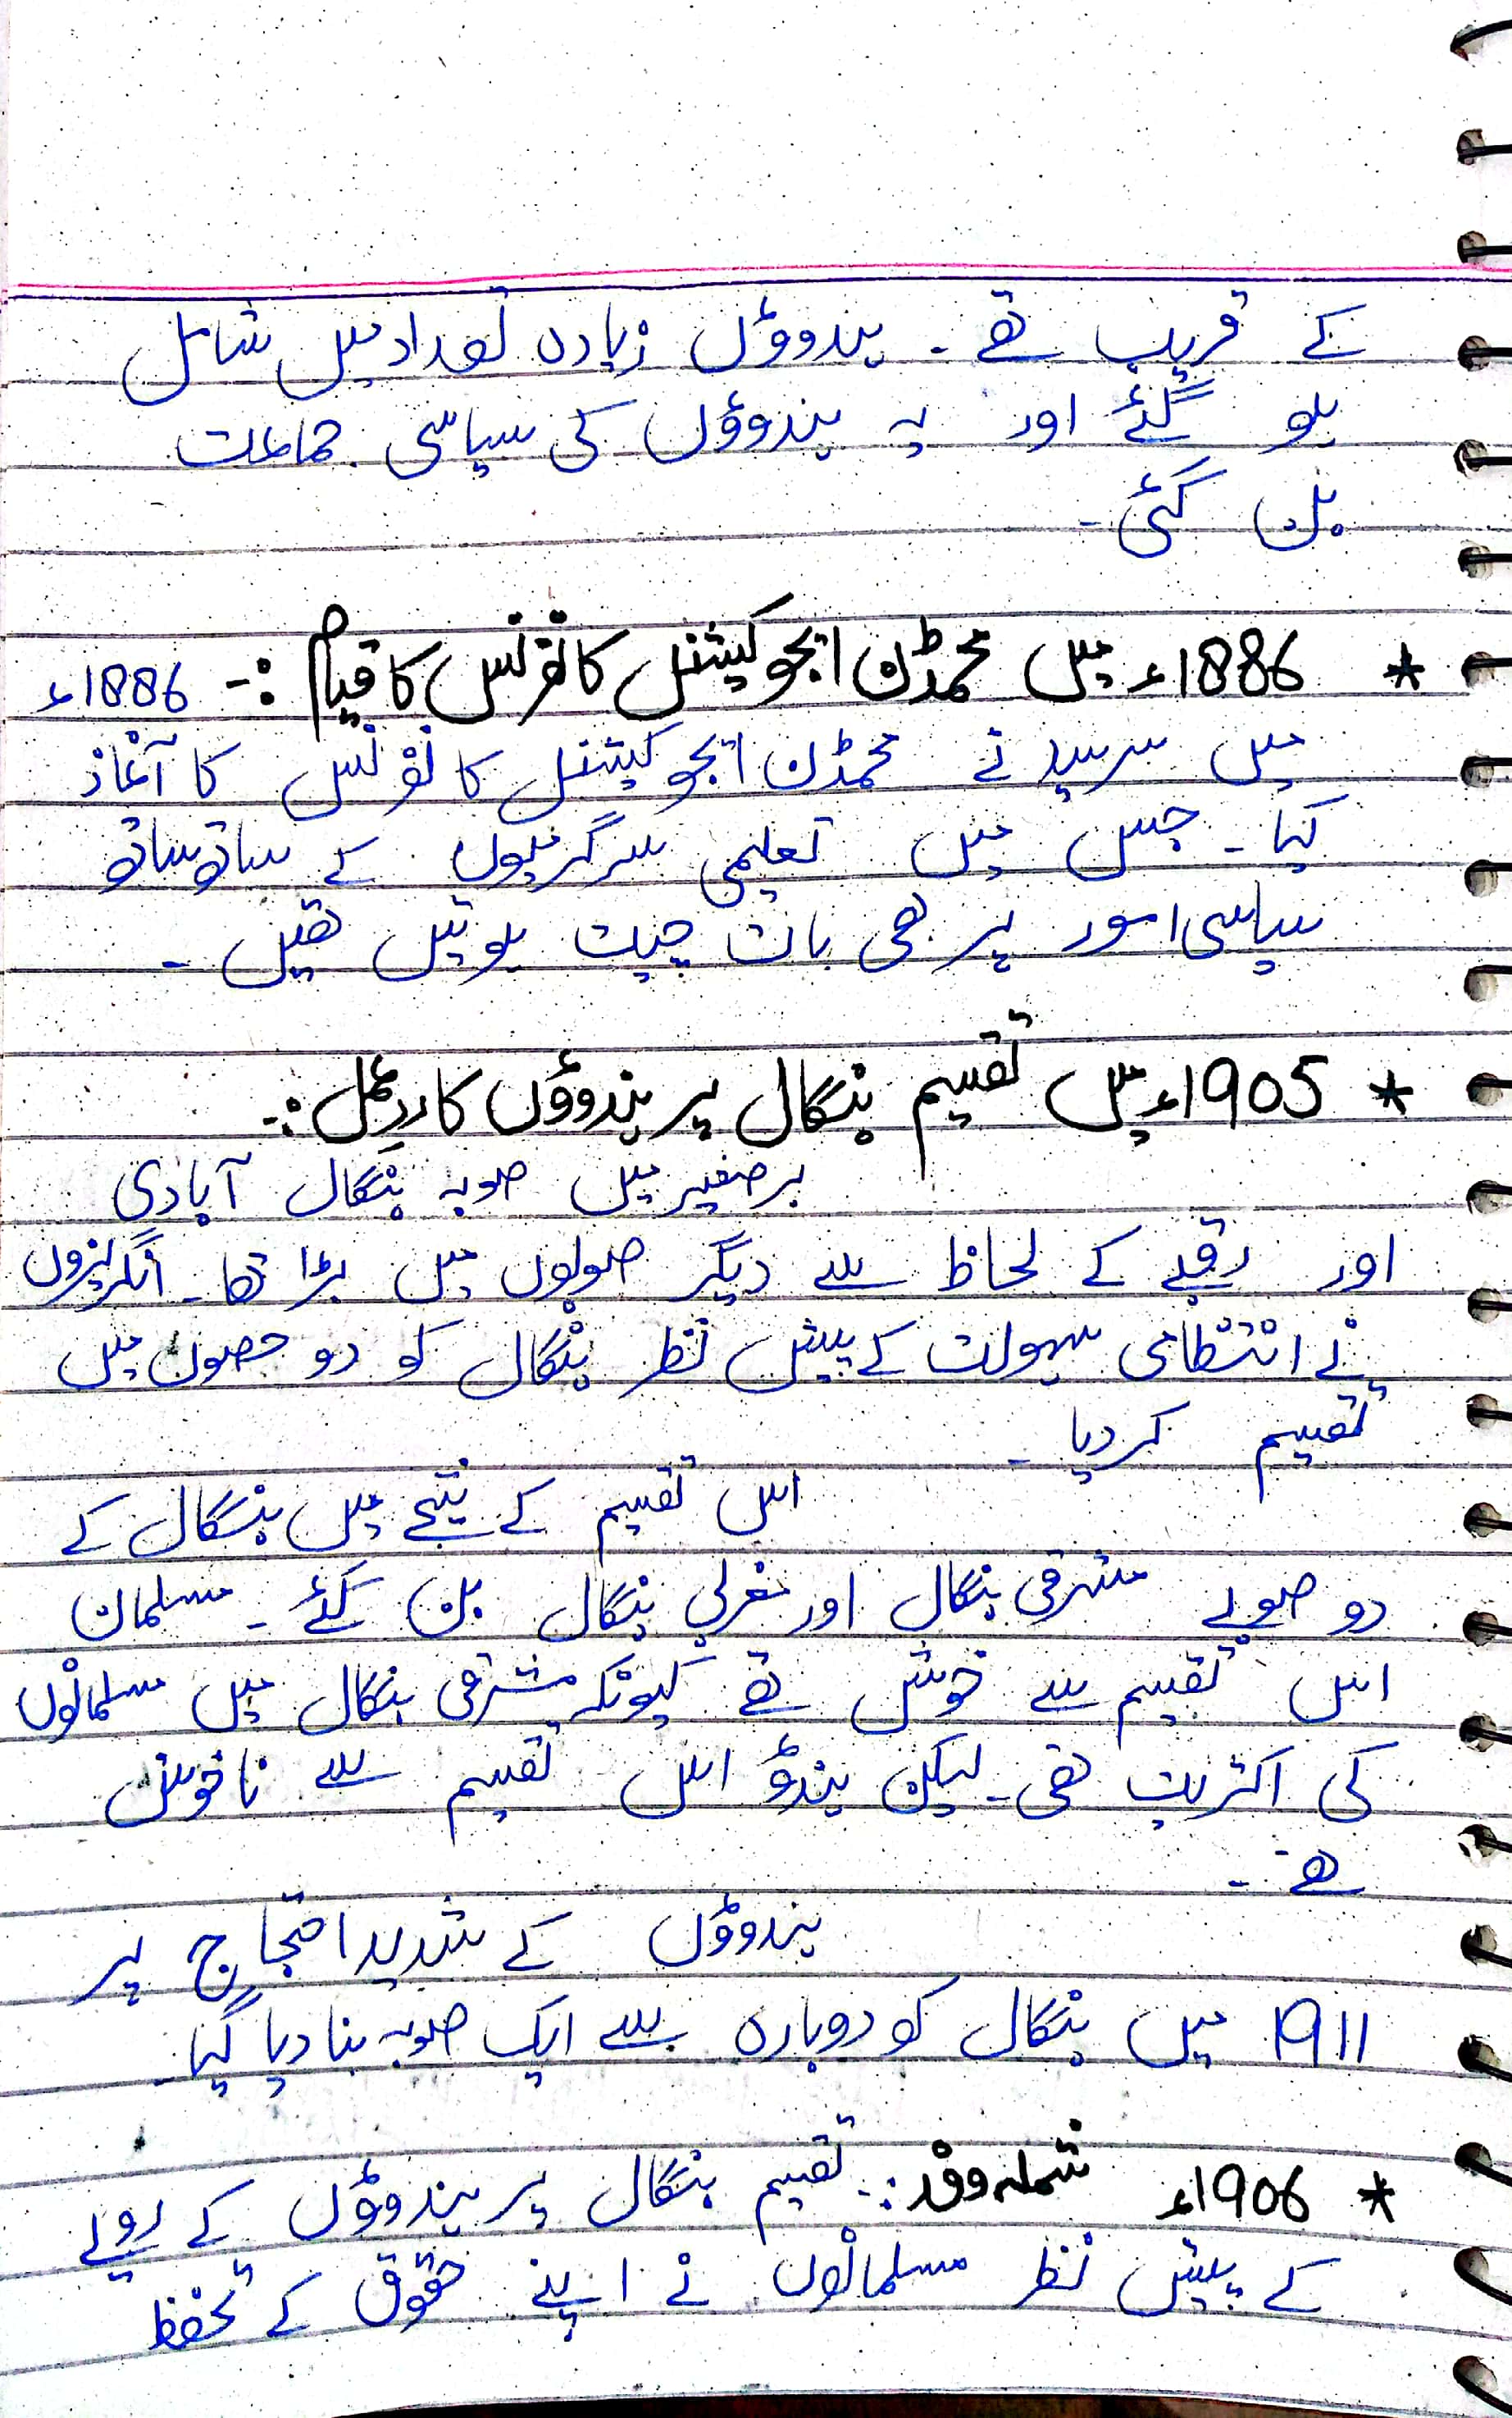 کے قریب تھے ۔ ہندوؤں زیادہ تعداد میں شامل
ہو گئے اور یہ ہندوؤں کی سیاسی جماعت
بن گئی ۔
* 1886ء میں محمڈن ایجوکیشنل کانفرنس کا قیام :- 1886ء
میں سرسید نے محمڈن ایجوکیشنل کانفرنس کا آغاز
کیا ۔ جس میں تعلیمی سرگرمیوں کے ساتھ ساتھ
سیاسی امور پر بھی بات چیت ہوتیں تھیں ۔
* 1905ء میں تقسیم بنگال پر ہندوؤں کا ردِعمل :-
برصغیر میں صوبہ بنگال آبادی
اور رقبے کے لحاظ سے دیگر صوبوں میں بڑا تھا ۔ انگریزوں
نے انتظامی سہولت کے پیش نظر بنگال کو دو حصوں میں
تقسیم کر دیا ۔
اس تقسیم کے نتیجے میں بنگال کے
دو صوبے مشرقی بنگال اور مغربی بنگال بن گئے ۔ مسلمان
اس تقسیم سے خوش تھے کیونکہ مشرقی بنگال میں مسلمانوں
کی اکثریت تھی ۔ لیکن ہندؤ اس تقسیم سے ناخوش
تھے ۔
ہندوؤں کے شدید احتجاج پر
1911 میں بنگال کو دوبارہ سے ایک صوبہ بنا دیا گیا ۔
* 1906ء شملہ وفد :- تقسیم بنگال پر ہندوؤں کے رویے
کے پیش نظر مسلمانوں نے اپنے حقوق کے تحفظ